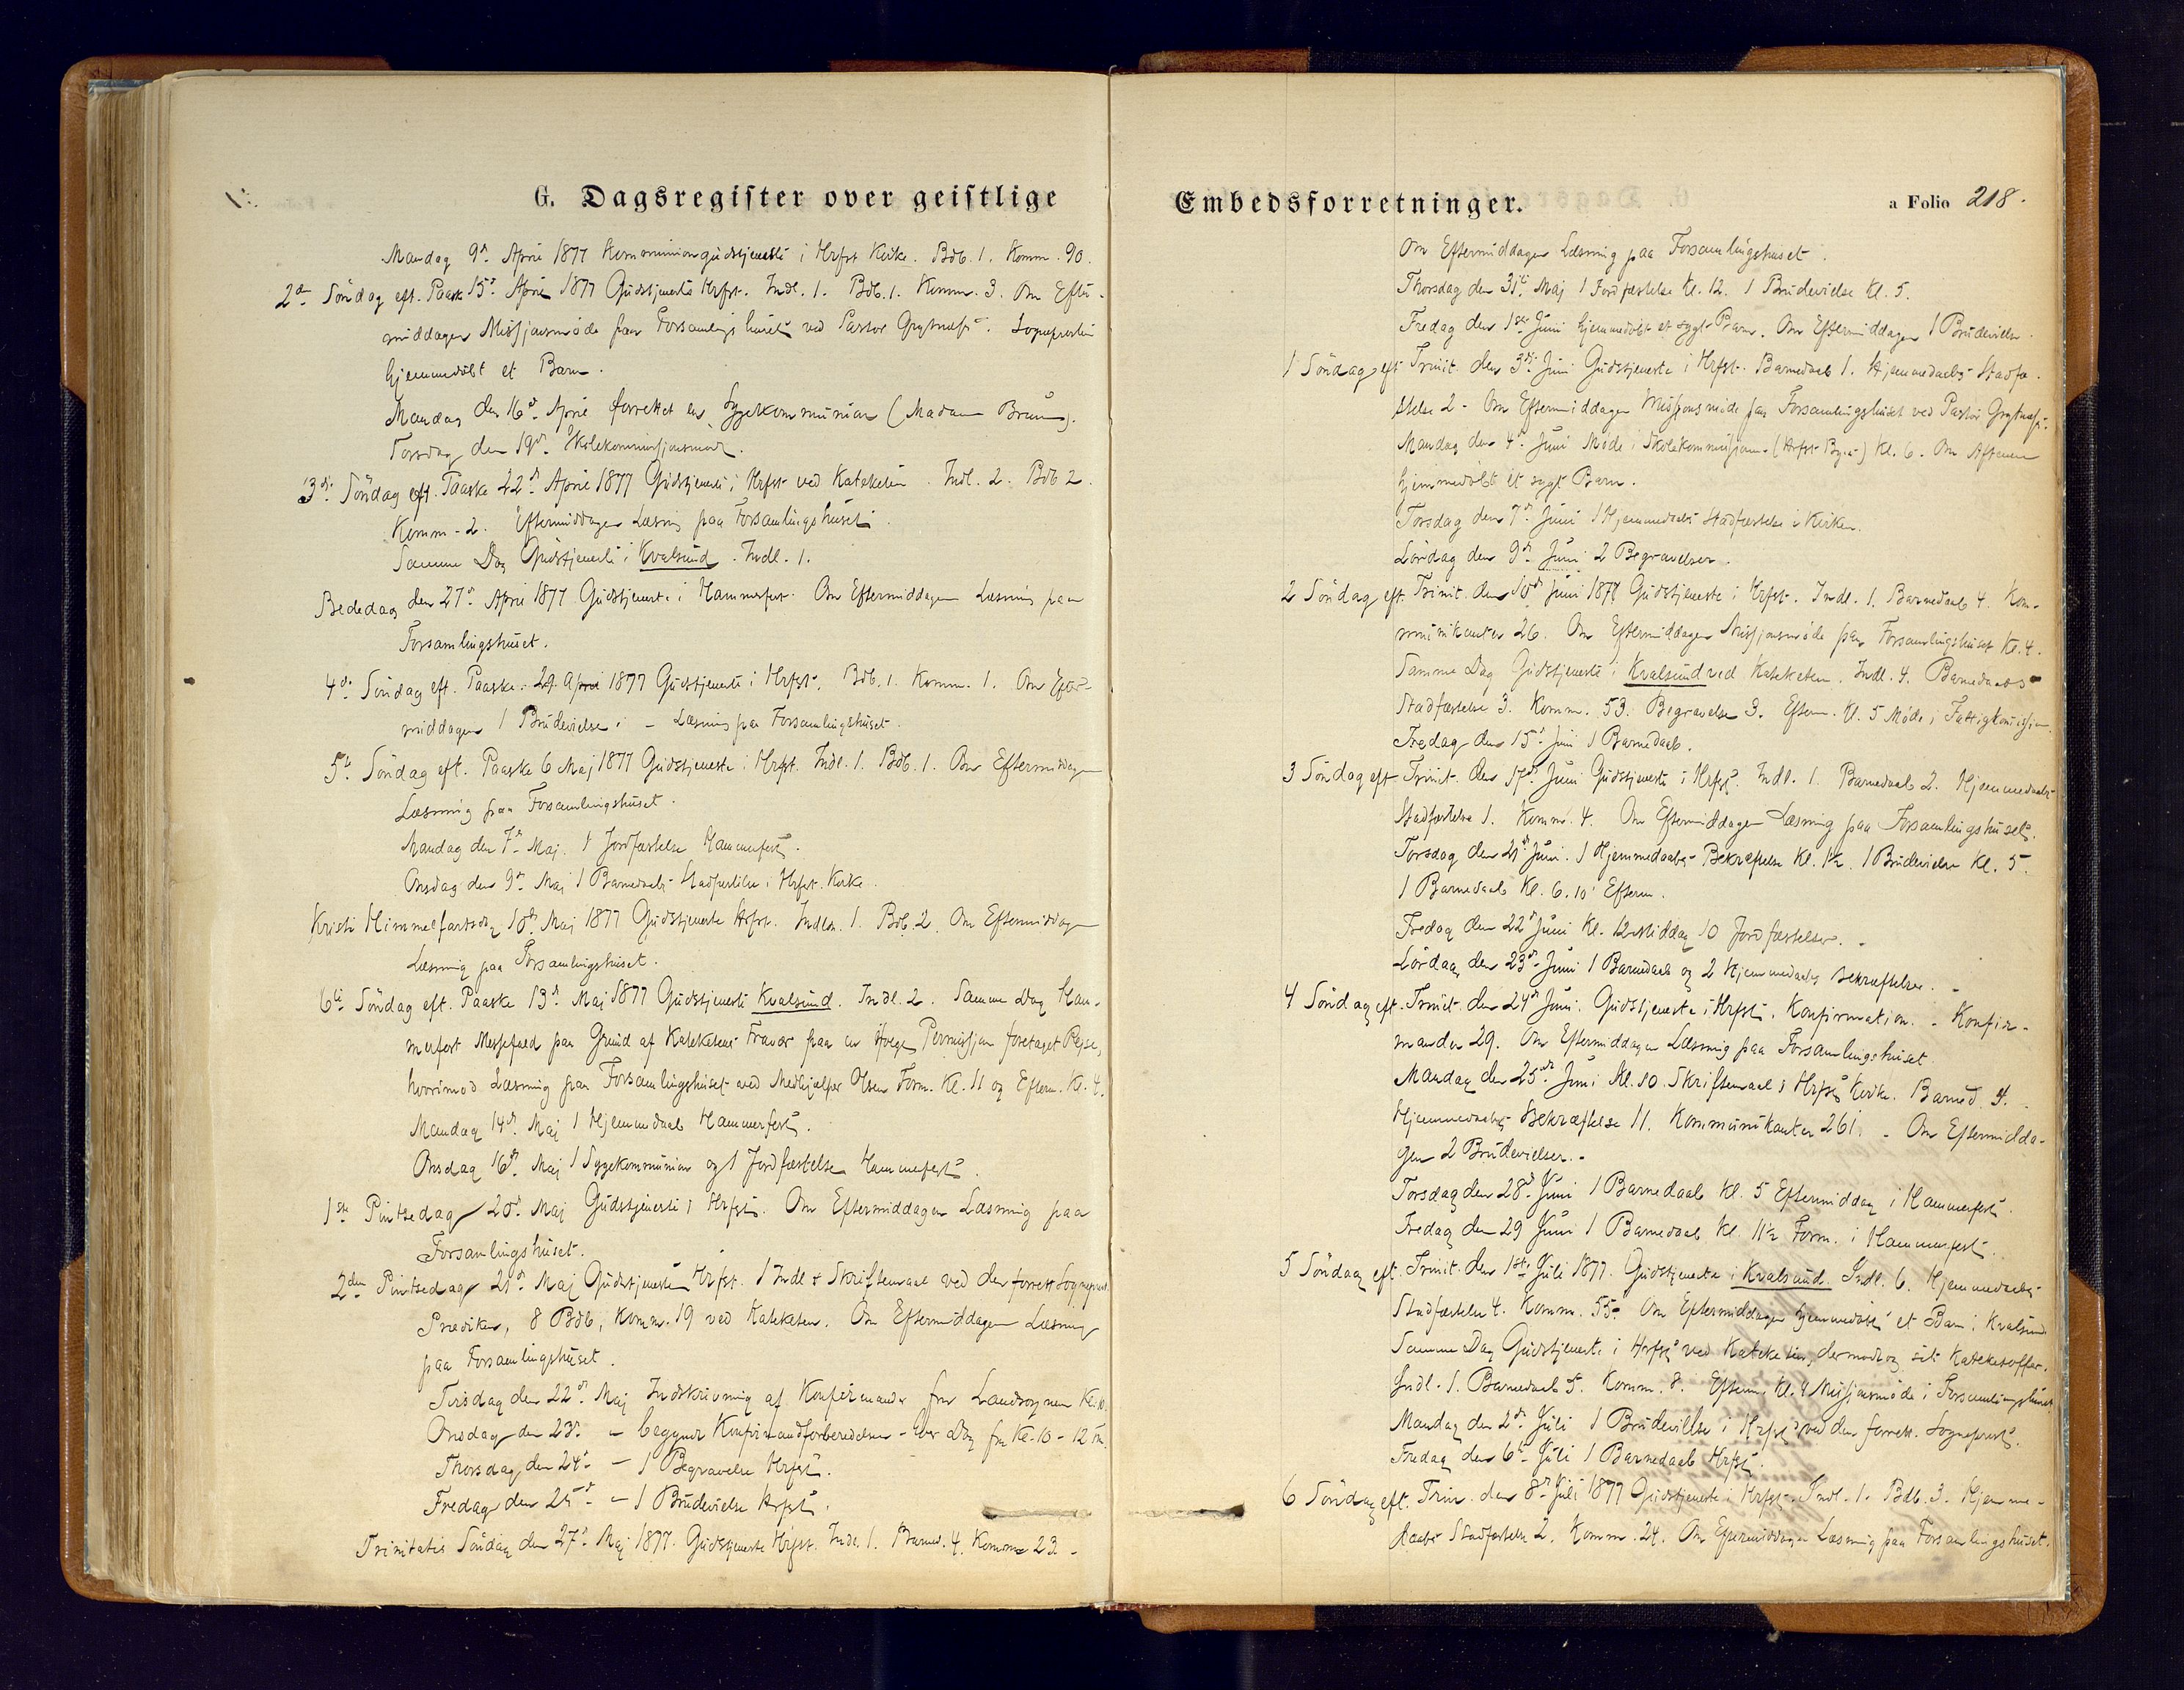 G. Dagsregister over geistlige
Mandag 9de April 1877 Kommuniongudstjeneste i Hrfst Kirke. Bdb. 1. Komm. 90.
2den Söndag eft. Paaske 15de April 1877 Gudstjeneste Hrfst. Indl. 1. Bdb. 1. Komm. 3. Om Efter-
middagen Missjonsmøde paa Forsamlingshuset ved Pastor Grytnæs. Sognepresten
hjemmedøbt et Barn.
Mandag den 16de April forrettet en Sygekommunion (Madam Bruun).
Torsdag den 19de Skolekommissjonsmøde.
3die Söndag eft. Paaske 22de April 1877 Gudstjeneste i Hrfst ved Kateketen. Indl. 2. Bdb 2.
Komm. 2. Eftermiddagen Læsning paa Forsamlingshuset.
Samme Dag Gudstjeneste i Kvalsund. Indl. 1.
Bededag den 27de April 1877 Gudstjeneste i Hammerfest. Om Eftermiddagen Læsning paa
Forsamlingshuset.
4de Söndag eft. Paaske 29 April 1877 Gudstjeneste i Hrfst. Bdb. 1. Komm. 1. Om Efter-
middagen 1 Brudevielse. - Læsning paa Forsamlingshuset.
5te Söndag eft. Paaske 6 Maj 1877 Gudstjeneste i Hrfst. Indl. 1. Bdb. 1. Om Eftermiddagen
Læsning paa Forsamlingshuset.
Mandag den 7de Maj. 1 Jordfæstelse Hammerfest.
Onsdag den 9de Maj 1 Barnedaabs-Stadfæstelse i Hrfst. Kirke.
Kristi Himmelfartsdag 10de Maj 1877 Gudstjeneste Hrfst. Indl. 1. Bdb. 2. Om Eftermiddagen
Læsning paa Forsamlingshuset.
6te Söndag eft. Paaske 13de Maj 1877 Gudstjeneste Kvalsund. Indl. 2. Samme Dag Ham-
merfest Messefald paa Grund af Katekens Fravær paa en ifølge Permissjon foretaget Rejse,
hvorimod Læsning paa Forsamlingshuset ved Medhjælper Olsen Form. Kl. 11 og Efterm. Kl. 4.
Mandag 14de Maj 1 Hjemmedaab Hammerfest.
Onsdag 16de Maj 1 Sygekommunion og 1 Jordfæstelse Hammerfest.
1ste Pintsedag 20de Maj Gudstjeneste i Hrfst. Om Eftermiddagen Læsning paa
Forsamlingshuset.
2den Pintsedag 21de Maj Gudstjeneste Hrfst. 1 Indl & Skriftemaal ved den forrett. Sogneprest.
Prædiken, 8 Bdb, Komm. 19 ved Kateketen. Om Eftermiddagen Læsning
paa Forsamlingshuset.
Tirsdag den 22de Maj Indskrivning af Konfirmander fra Landsognene Kl. 10.
Onsdag den 23de - begyndt Konfirmandforberedelsen - hver Dag fra Kl. 10 - 12 Fm.
Thorsdag den 24de - 1 Begravelse Hrfst.
Fredag den 25de - 1 Brudevielse Hrfst.
Trinitatis Söndag den 27de Maj 1877. Gudstjeneste Hrfst. Indl. 1. Barned. 4. Komm 23.
Embedsforretninger.
a Folio 218.
Om Eftermiddagen Læsning paa Forsamlingshuset.
Thorsdag den 31te Maj 1 Jordfæstelse Kl. 12. 1 Brudevielse Kl. 5.
Fredag den 1ste Juni hjemmedøbt et sygt Barn. Om Eftermiddagen 1 Brudevielse.
1 Söndag eft Trinit. den 3die Juni Gudstjeneste i Hrfst. Barnedaab 1. Hjemmedaabs-Stadfæ-
stelse 2 - Om Eftermiddagen Missjonsmøde paa Forsamlingshuset ved Pastor Grytnæs.
Mandag den 4de Juni Møde i Skolekommissjonen (Hrfst By) Kl. 6. Om Aftenen
hjemmedöbt et sygt Barn.
Torsdag den 7de Juni 1 Hjemmedaabs Stadfæstelse i Kirken.
Lördag den 9de Juni 2 Begravelser.
2 Söndag eft. Trinit. den 10de Juni 1877 Gudstjeneste i Hrfst. Indl. 1. Barnedaab 4. Kom-
munikanter 26. Om Eftermiddagen Missjonsmøde paa Forsamlingshuset Kl. 4.
Samme Dag Gudstjeneste i Kvalsund ved Kateketen. Indl. 4. Barnedaabs-
Stadfæstelse 3. Komm. 53. Begravelse 3. Efterm. Kl. 5 Møde i Fattigkommissjon.
Fredag den 15de Juni 1 Barnedaab.
3 Söndag eft Trinit. den 17de Juni Gudstjeneste i Hrfst. Indl. 1. Barnedaab 2. Hjemmedaabs-
Stadfæstelse 1. Komm. 4. Om Eftermiddagen Læsning paa Forsamlingshuset.
Torsdag den 21de Juni. 1 Hjemmedaabs-Bekræftelse Kl. 1½. 1 Brudevielse Kl. 5.
1 Barnedaab Kl. 6.10 Efterm.
Fredag den 22de Juni Kl. 12 Middag 10 Jordfæstelser. -
Lördag den 23de Juni 1 Barnedaab og 2 Hjemmedaabs Bekræftelse. -
4 Söndag eft. Trinit. den 24de Juni. Gudstjeneste i Hrfst. Konfirmation. - Konfir-
mander 29. Om Eftermiddagen Læsning paa Forsamlingshuset.
Mandag den 25de Juni Kl. 10. Skriftemaal i Hrfst Kirke. Barned. 4. -
Hjemmedaabs Bekræftelse 11. Kommunikanter 261. - Om Eftermidda-
gen 2 Brudevielser. -
Torsdag den 28de Juni 1 Barnedaab Kl. 5 Eftermiddag i Hammerfest.
Fredag den 29 Juni 1 Barnedaab Kl. 11½ Form. i Hammerfest.
5 Söndag eft. Trinit. den 1ste Juli 1877. Gudstjeneste i Kvalsund. Indl. 6. Hjemmedaabs-
Stadfæstelse 4. Komm. 55. Om Eftermiddagen hjemmedöbt et Barn i Kvalsund
Samme Dag Gudstjeneste i Hrfst ved Kateketen, der modtog sit Kateketoffer.
Indl. 1. Barnedaab 5. Komm. 8. Efterm. Kl. 4 Missjonsmøde i Forsamlingshuset
Mandag den 2de Juli 1 Brudevielse i Hrfst ved den forrett. Sogneprest.
Fredag den 6te Juli 1 Barnedaab Hrfst.
6 Söndag eft. Trin. den 8de Juli 1877 Gudstjeneste i Hrfst. Indl. 1. Bdb. 3. Hjemme-
daabs Stadfæstelse 2. Komm. 24. Om Eftermiddagen Læsning paa Forsamlingshuset.